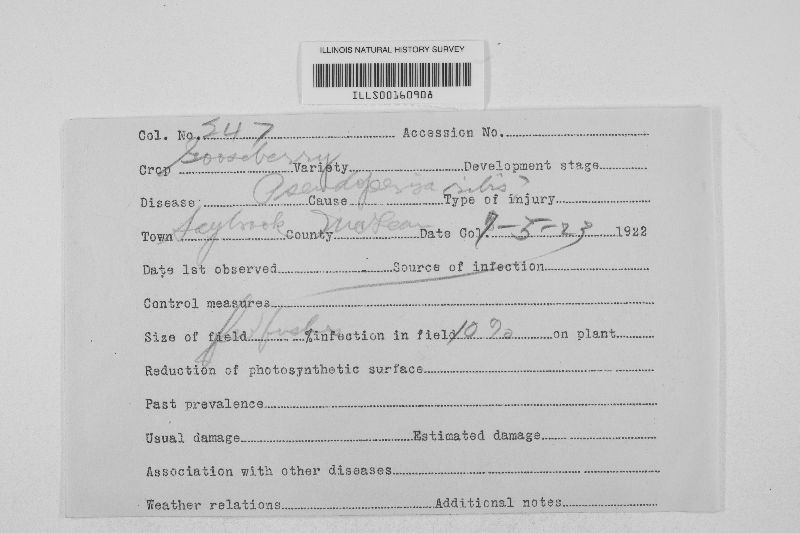 ILLINOIS NATURAL HISTORY SURVEY
ILLS00160908
Col. No. 347 Accession No.
Crop Gooseberry Variety Development stage
Disease Cause Pseudopeziza ribis Type of injury
Town Saybrook County McLean Date Col. 7-5-23 1922
Date 1st observed Source of infection
Control measures
Size of field bushes %infection in field 10% on plant
Reduction of photosynthetic surface
Past prevalence
Usual damage Estimated damage
Association with other diseases
Weather relations Additional notes